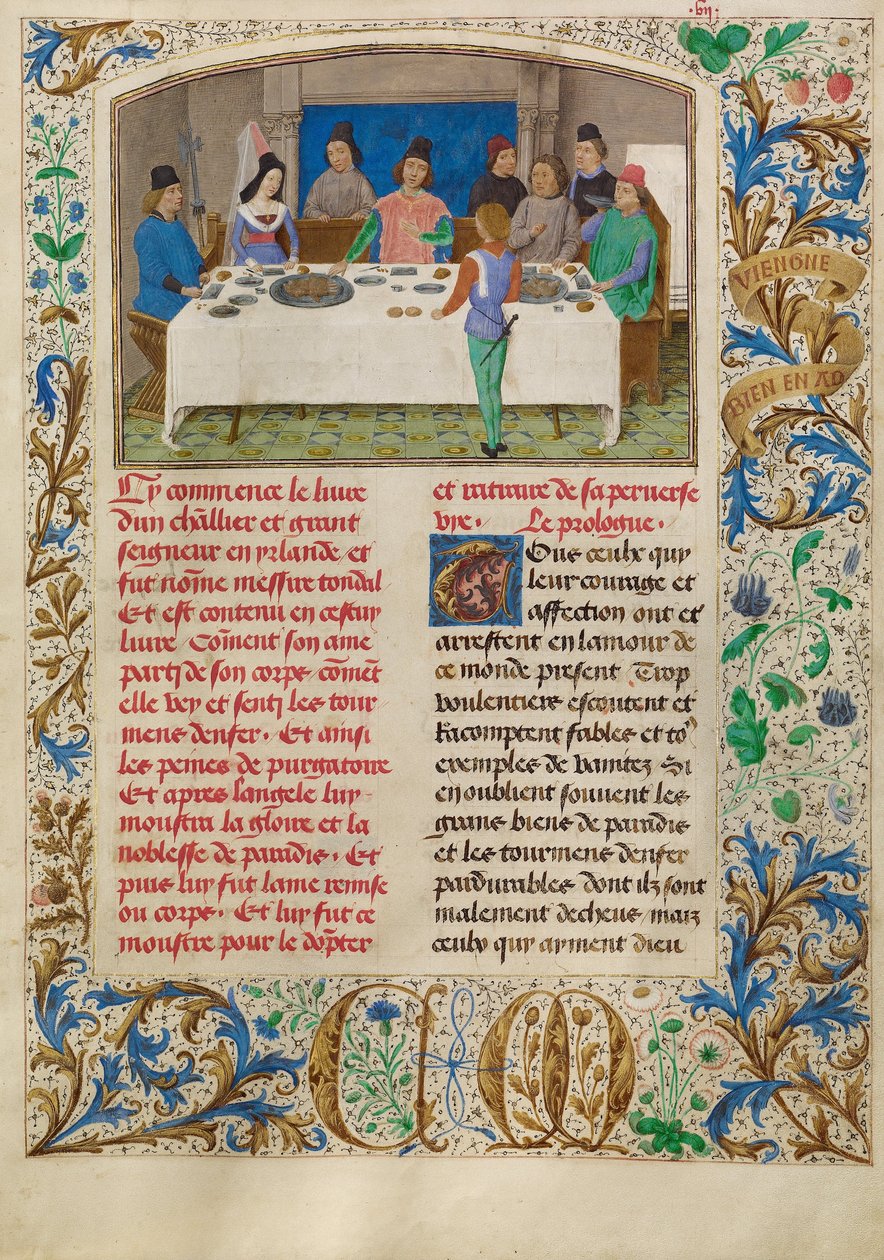 ·vii·
VIENGNE
BIEN EN AD
Cy commence le liure
dun chãllier et grant
seigneur en yrlande et
fut nom̃e messire tondal
Et est contenu en cestuy
liure Com̃ent son ame
parti de son corps com̃ẽt
elle vey et senti les tour
mens denfer. Et ainsi
les peines de purgatoire
Et apres langele luy
moustra la gloire et la
noblesse de paradis. Et
puis luy fut lame remise
ou corps. Et luy fut ce
moustre pour le dom̃pter
et retraire de sa peruerse
vye. Le prologue.
Tous ceulx quy
leur courage et
affection ont et
arrestent en lamour de
ce monde present Trop
voulentiers escoutent et
Racomptent fables et to9
exemples de vanitez Si
en oublient souuent les
grans biens de paradis
et les tourmens denfer
pardurables dont ilz sont
malement deceus maiz
ceulx quy ayment dieu